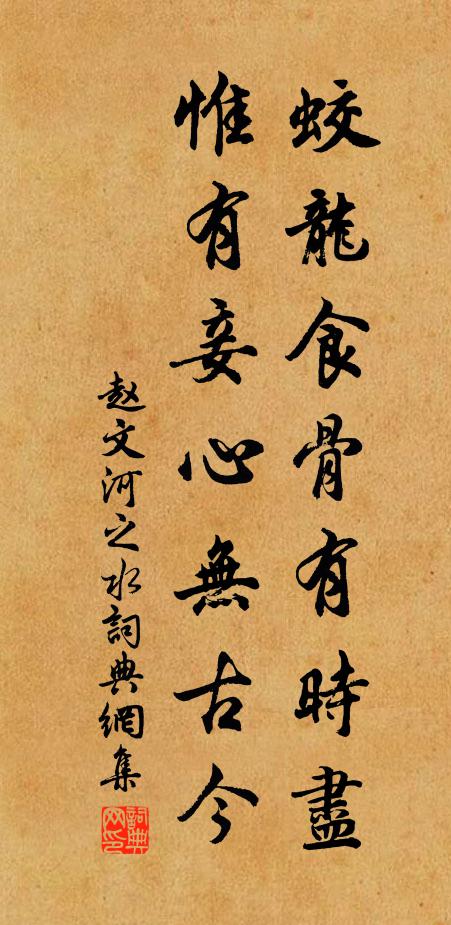 蛟龍食骨有時盡
惟有妾心無古今
赵文河之水詞典網集
詞典网印